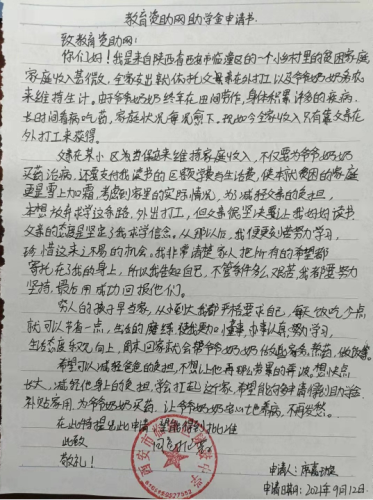 教育资助网助学金申请书
致教育资助网：
你们好！我是来自陕西省西安市临潼区的一个小乡村里的贫困家庭，
家庭收入甚微，全家支出就依托父亲在外打工以及爷爷奶奶务农
来维持生计。由于爷爷奶奶终年在田间劳作，身体积累许多的疾病，
长时间看病吃药，家庭状况每况愈下。现如今全家收入只有靠父亲在
外打工来获得。
父亲在某小区为当保安来维持家庭收入，不仅要为爷爷奶奶
买药治病，还要支付我读书的学费与生活费，使本就贫困的家庭
更是雪上加霜，考虑到家里的实际情况，为了减轻父亲的负担，
本想放弃求学这条路，外出打工，但父亲很坚决要让我好好读书
父亲的态度坚定了我求学信念。从那以后，我便更刻苦努力学习，
珍惜这来之不易的机会。我非常清楚家人把所有的希望都
寄托在了我的身上，所以我告知自己，不管条件多么艰苦我都要努力
坚持，最后用成功回报他们。
穷人的孩子早当家，从小到大我都严格要求自己，每天饭吃少点
就可以节省一点，生活的磨练使我更加懂事，办事认真，努力学习，
生活态度积极向上，周末回家就会帮爷爷奶奶做家务，
希望可以减轻爸爸的负担，不想让他再那么劳累的奔波。想快点
长大，减轻他身上的负担，撑起这个家，希望能够申请得到助学金
补贴家用，为爷爷奶奶买药，让爷爷奶奶安心地养病，不再愁。
在此特提出此申请，望能得到批准
此致
敬礼！
申请人：
申请日期：2021年9月12日